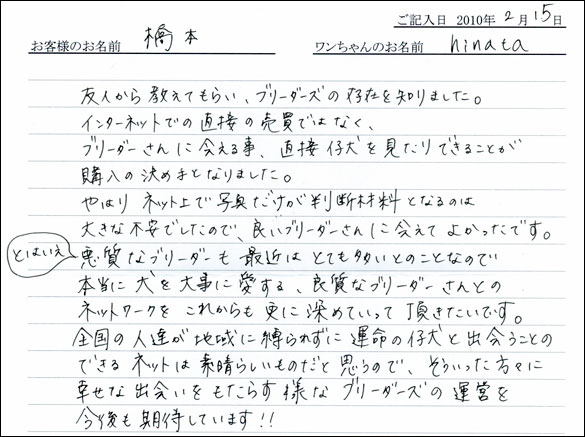 ご記入日 2010年 2月 15日
お客様のお名前 橋本 ワンちゃんのお名前 hinata
友人から教えてもらい、ブリーダーズの存在を知りました。
インターネットでの直接の売買ではなく、
ブリーダーさんに会える事、直接仔犬を見たりできることが
購入の決め手となりました。
やはりネット上で写真だけが判断材料となるのは
大きな不安でしたので、良いブリーダーさんに会えてよかったです。
とはいえ 悪質なブリーダーも最近はとても多いとのことなので
本当に犬を大事に愛する、良質なブリーダーさんとの
ネットワークをこれからも更に深めていって頂きたいです。
全国の人達が地域に縛られずに運命の仔犬と出会うことの
できるネットは素晴らしいものだと思うので、そういった方々に
幸せな出会いをもたらす様なブリーダーズの運営を
今後も期待しています!!